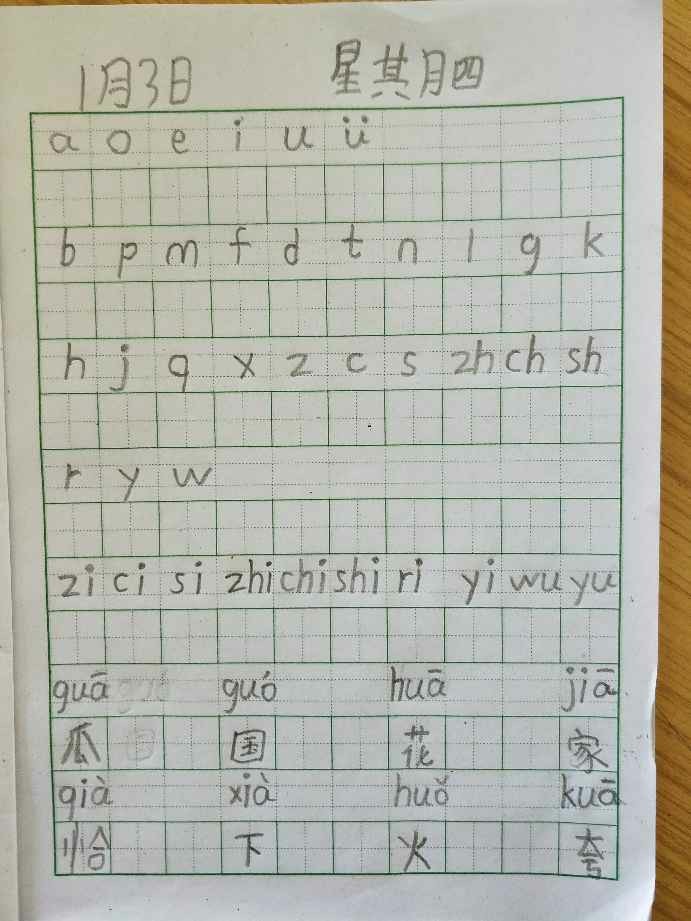 1月3日 星其月四
a o e i u ü
b p m f d t n l g k
h j q x z c s zh ch sh
r y w
zi ci si zhi chi shi ri yi wu yu
guā guó huā jiā
瓜 国 花 家
qià xià huǒ kuā
恰 下 火 夸